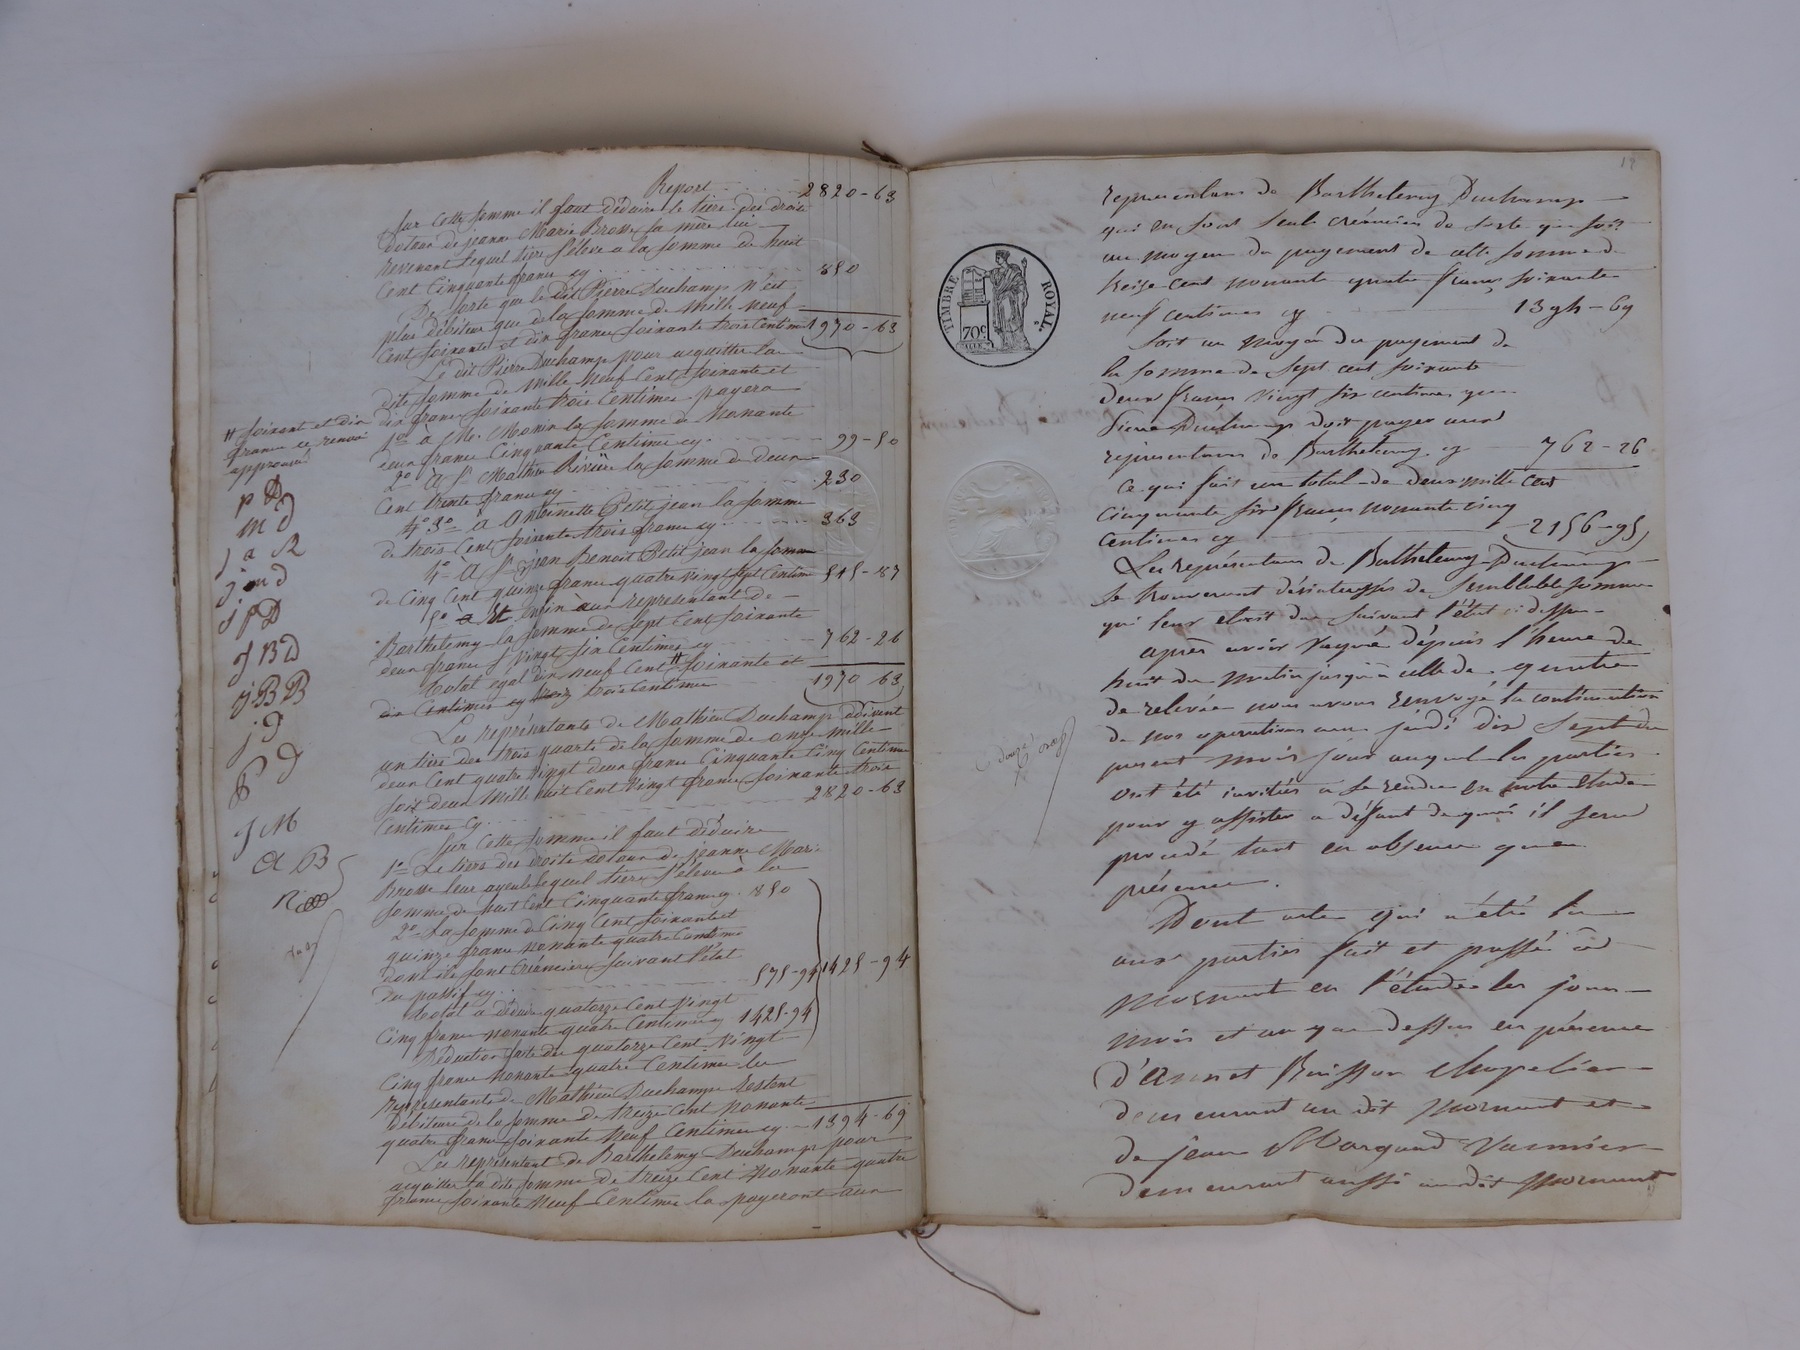 Report 2820-63
Sur cette somme il faut déduire le tiers des droits
dotaux de jeanne Marie Brosse sa mère lui
revenant lequel tiers s'élève à la somme de huit
Cent Cinquante francs cy 850
De sorte que le dit Pierre Duchamp n'est
plus débiteur que de la somme de Mille neuf
Cent soixante et dix francs soixante trois Centimes 1970-63
Le dit Pierre Duchamp pour acquitter la
dite somme de Mille Neuf Cent soixante et
dix francs soixante trois Centimes payera
1° à Me. Monin la somme de Nonante
neuf francs Cinquante Centimes cy 99-50
2° à Sr Mathieu Rivière la somme de deux
Cent trente francs cy 230
3° à Antoinette Petit jean la somme
de trois Cent soixante trois francs cy 363
4° à Sr jean Benoit Petit jean la somme
de Cinq Cent quinze francs quatre vingt sept Centimes 515-87
5° Enfin aux représentants de
Barthelemy la somme de sept Cent soixante
deux francs Vingt six Centimes cy 762-26
total egal dix neuf Cent # soixante et
dix Centimes cy trois Centimes 1970 63
Les représentants de Mathieu Duchamp doivent
un tiers des trois quarts de la somme de onze mille
deux Cent quatre Vingt deux francs Cinquante Cinq Centimes
soit deux Mille huit Cent Vingt francs soixante trois
Centimes Cy 2820-63
Sur cette somme il faut déduire
1° Le tiers des droits dotaux de jeanne Marie
Brosse leur ayeule lequel tiers s'élève à la
somme de huit Cent Cinquante francs cy 850
2° La somme de Cinq Cent soixante et
quinze francs nonante quatre Centimes
dont ils sont Créanciers suivant l'état
du passif cy 575-94 1425-94
total à déduire quatorze Cent Vingt
Cinq francs nonante quatre Centimes cy 1425-94
Déduction faite des quatorze Cent Vingt
Cinq francs nonante quatre Centimes les
représentants de Mathieu Duchamp restent
débiteurs de la somme de treize Cent nonante
quatre francs soixante Neuf Centimes cy 1394-69
Les représentants de Barthelemy Duchamp pour
acquitter la dite somme de treize Cent Nonante quatre
francs soixante Neuf Centimes la payeront aux
# soixante et dix
francs ce renvoi
approuvé
p D
m d
j a R
j m d
j p D
j B D
j B B
j d
P d
j M
a B
TIMBRE ROYAL
70c
12
representans de Barthelemy Duchamp
qui en sont seuls créanciers de sorte que soit
au moyen du payement de cette somme de
treize cent nonante quatre francs soixante
neuf centimes cy 1394-69
Soit au moyen du payement de
la somme de sept cent soixante
deux francs vingt six centimes que
Pierre Duchamp doit payer aux
representans de Barthelemy cy 762-26
Ce qui fait un total de deux mille cent
cinquante six francs nonante cinq
centimes cy 2156-95
Les représentans de Barthelemy Duchamp
se trouveront désinteressés de semblable somme
qui leur etoit due suivant l'état ci dessus
après avoir vaqué depuis l'heure de
huit du matin jusqu'à celle de quatre
de relevée nous avons renvoyé la continuation
de nos operations au jeudi dix sept du
present mois jour auquel les parties
ont été invitées à se rendre en notre etude
pour y assister à défaut de quoi il sera
procédé tant en absence que
présence.
Dont acte qui a été lu
aux parties fait et passé à
Mornant en l'étude les jour
mois et an que dessus en présence
d'annet Buisson chapelier
demeurant au dit Mornant et
de jean Margand
demeurant aussi au dit Mornant